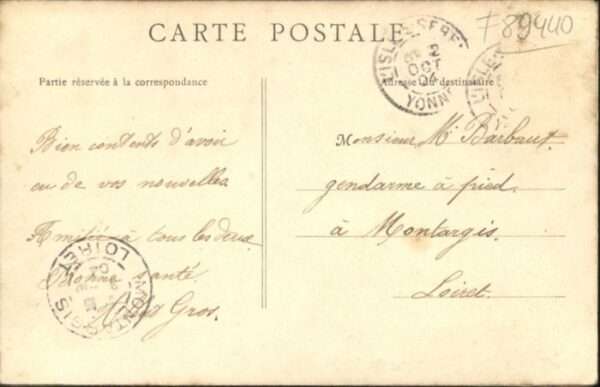 F 89440
CARTE POSTALE
L'ISLE-S-SEREIN
2
OCT
04
YONNE
Partie réservée à la correspondance
Adresse du destinataire
L'ISLE
Bien contents d'avoir
eu de vos nouvelles.
Amitié à tous les deux
Bonne santé
Gros.
Monsieur Mr Barbaut.
gendarme à pied.
à Montargis.
Loiret.
MONTARGIS
LOIRET